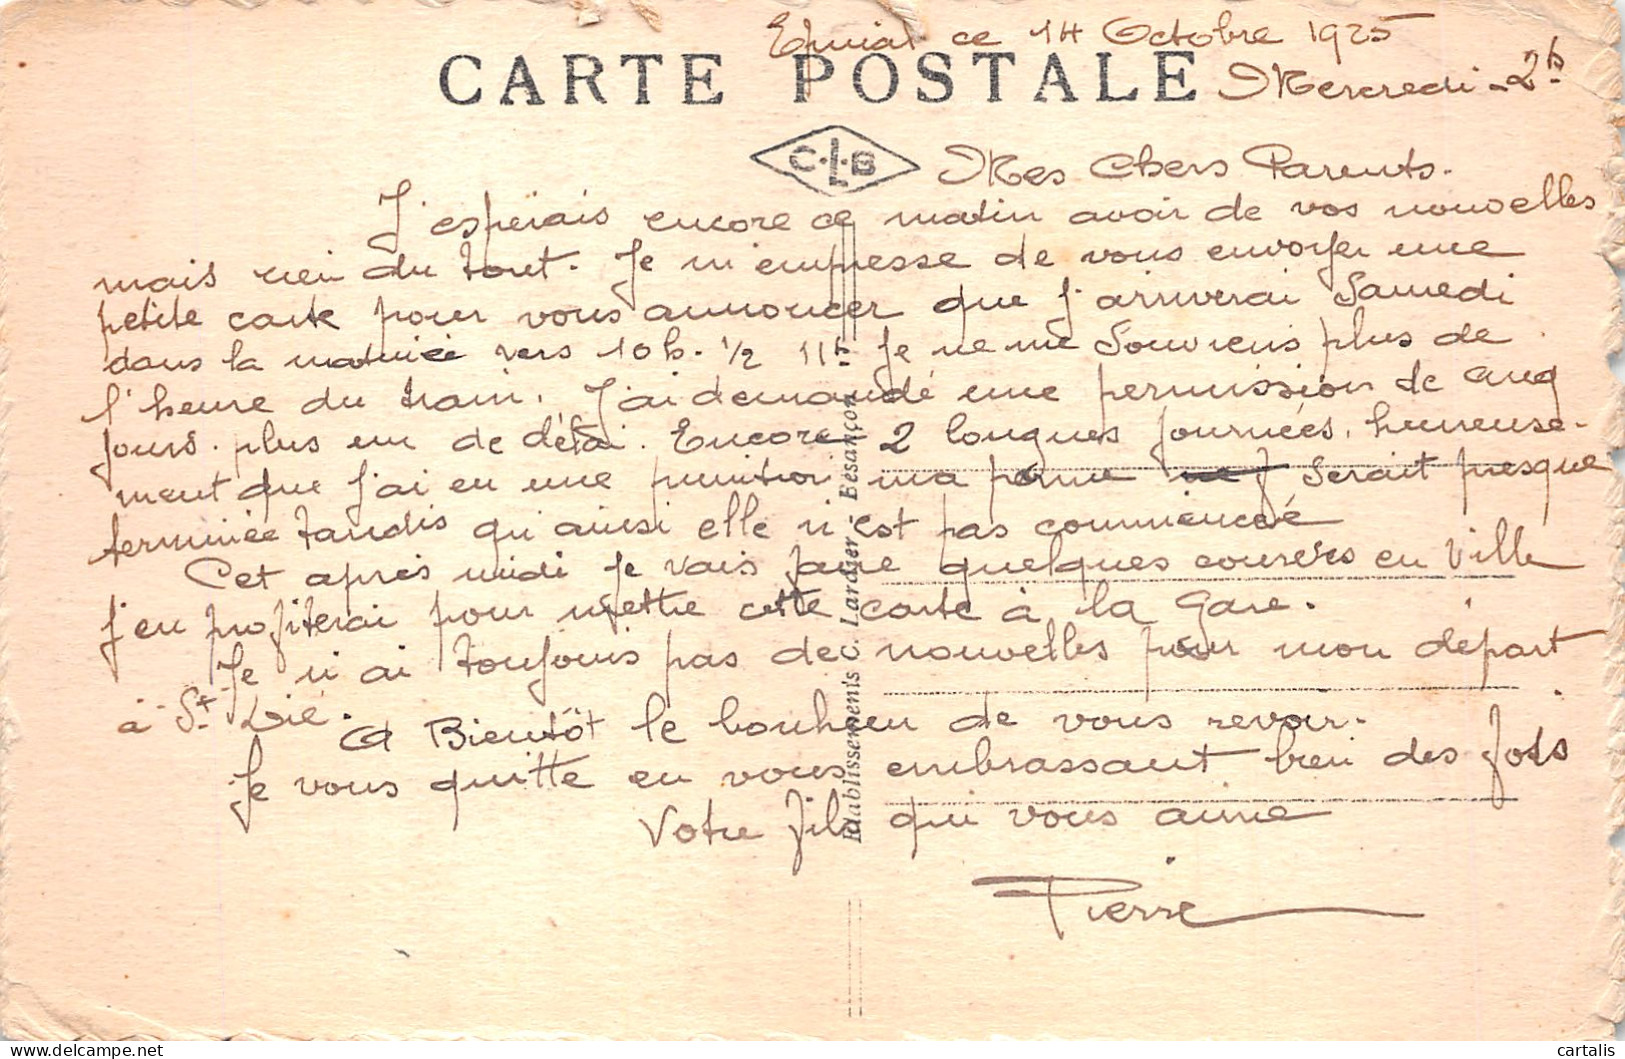 Epinal ce 14 Octobre 1925
CARTE POSTALE
Mercredi - 2h
C.L.B
Mes Chers Parents.
J'espérais encore ce matin avoir de vos nouvelles
mais rien du tout. Je m'empresse de vous envoyer une
petite carte pour vous annoncer que j'arriverai Samedi
dans la matinée vers 10h. 1/2 11h Je ne me souviens plus de
l'heure du train. J'ai demandé une permission de cinq
jours. plus un de délai. Encore 2 longues journées, heureuse-
ment que j'ai eu une punition ma peine serait presque
terminée tandis qu'ainsi elle n'est pas commencée
Cet après midi je vais faire quelques courses en Ville
j'en profiterai pour mettre cette carte à la Gare.
Je n'ai toujours pas de nouvelles pour mon départ
à St Dié.
A Bientôt le bonheur de vous revoir.
Je vous quitte en vous embrassant bien des fois
Votre fils qui vous aime
Pierre
Etablissements C. Lardier - Besançon
cartalis